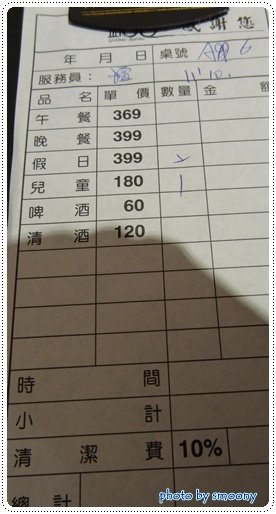 感謝您
年 月 日 桌號 6
服務員： 11'10.
品名 單價 數量 金額
午餐 369
晚餐 399
假日 399
兒童 180 1
啤酒 60
清酒 120
時間
小計
清潔費 10%
總計
photo by smoony